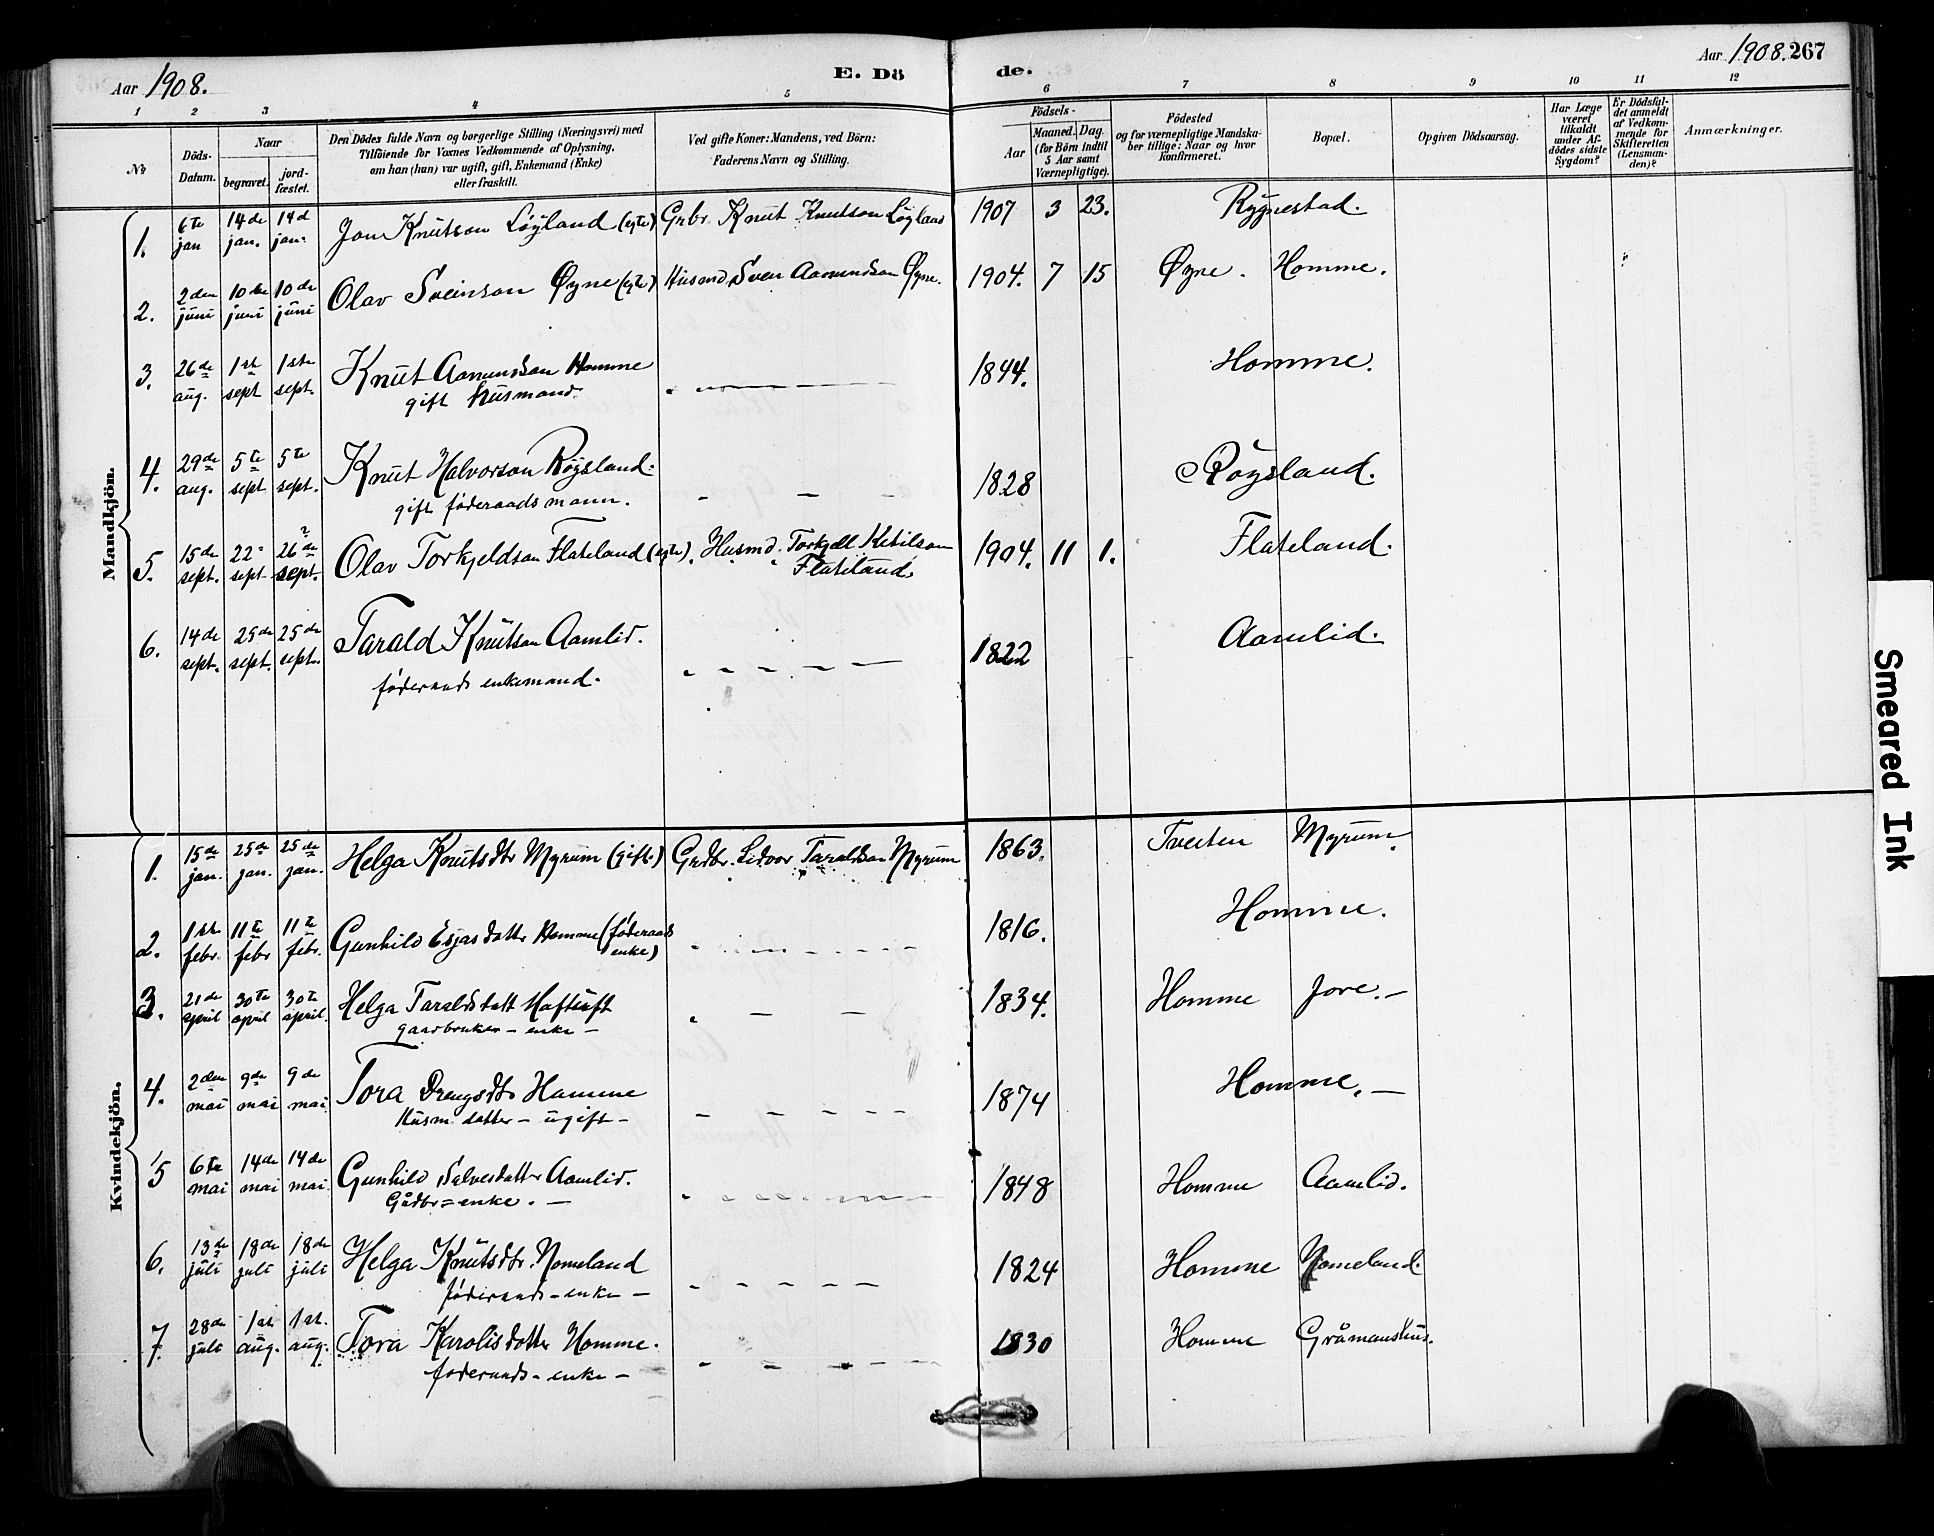 Aar 1908.
E. Dö
de.
Aar 1908. 267
1 2 3 4 5 6 7 8 9 10 11 12
No
Döds-Datum.
Naar
begravet.
jord-fæstet.
Den Dödes fulde Navn og borgerlige Stilling (Næringsvei) med
Tilföiende for Voxnes Vedkommende af Oplysning,
om han (hun) var ugift, gift, Enkemand (Enke)
eller fraskilt.
Ved gifte Koner: Mandens, ved Börn:
Faderens Navn og Stilling.
Födsels-
Aar
Maaned. Dag.
(for Börn indtil
5 Aar samt
Værnepligtige).
Födested
og for værnepligtige Mandska-
ber tillige: Naar og hvor
konfirmeret.
Bopæl.
Opgiven Dödsaarsag.
Har Læge
været
tilkaldt
under Af-
dödes sidste
Sygdom?
Er Dödsfal-
det anmeldt
af Vedkom-
mende for
Skifteretten
(Lensman-
den)?
Anmærkninger.
Mandkjön.
1. 6te jan 14de jan. 14d jan. Jon Knutson Löyland (egte) Grbr. Knut Knutson Löyland 1907 3 23. Rygnestad.
2. 2den juni 10de juni 10de juni Olav Sveinson Øyne (egte) Husmd. Svein Aamundson Øyne. 1904. 7 15 Øyne. Homme. ?
3. 26de aug. 1ste sept 1ste sept. Knut Aamundson Homme 1844. Homme.
gift husmand.
4. 29de aug. 5te sept 5te sept. Knut Halvorson Röysland. 1828 Röysland.
gift föderaadsmann.
5. 15de sept. 22 sept 26de sept. ? Olav Torkjeldson Flateland (egte). Husmd. Torkjell Ketilson 1904. 11 1. Flateland.
Flateland.
6. 14de sept. 25de sept. 25de sept. Tarald Knutson Aamlid. 1822 Aamlid.
föderaads enkemand.
Kvindekjön.
1. 15de jan. 25de jan. 25de jan. Helga Knutsdtr Myrum (gift.) Grdbr. Lidvor Taraldson Myrum 1863. Tveiten Myrum.
2. 1ste febr. 11te febr 11te febr. Gunhild Esjasdattr Homme (föderaads 1816. Homme.
enke)
3. 21de april 30te april 30te april. Helga Taraldsdatt Haftuft 1834. Homme Jore. —
gaardbruker – enke –
4. 2den mai 9de mai 9de mai Tora Drengsdtr Homme 1874 Homme. —
Husm. datter – ugift –
5 6te mai 14de mai 14de mai. Gunhild Salvesdattr Aamlid. 1848 Homme Aamlid.
Gårdbr = enke. —
6. 13de juli 18de juli 18de juli Helga Knutsdtr. Nomeland 1824 Homme Nomeland.
föderaads – enke –
7. 28de juli 1st. aug. 1st. aug. Tora Karolisdotter Homme. 1830 Homme Gråmanshus.
föderaads – enke –
Smeared Ink